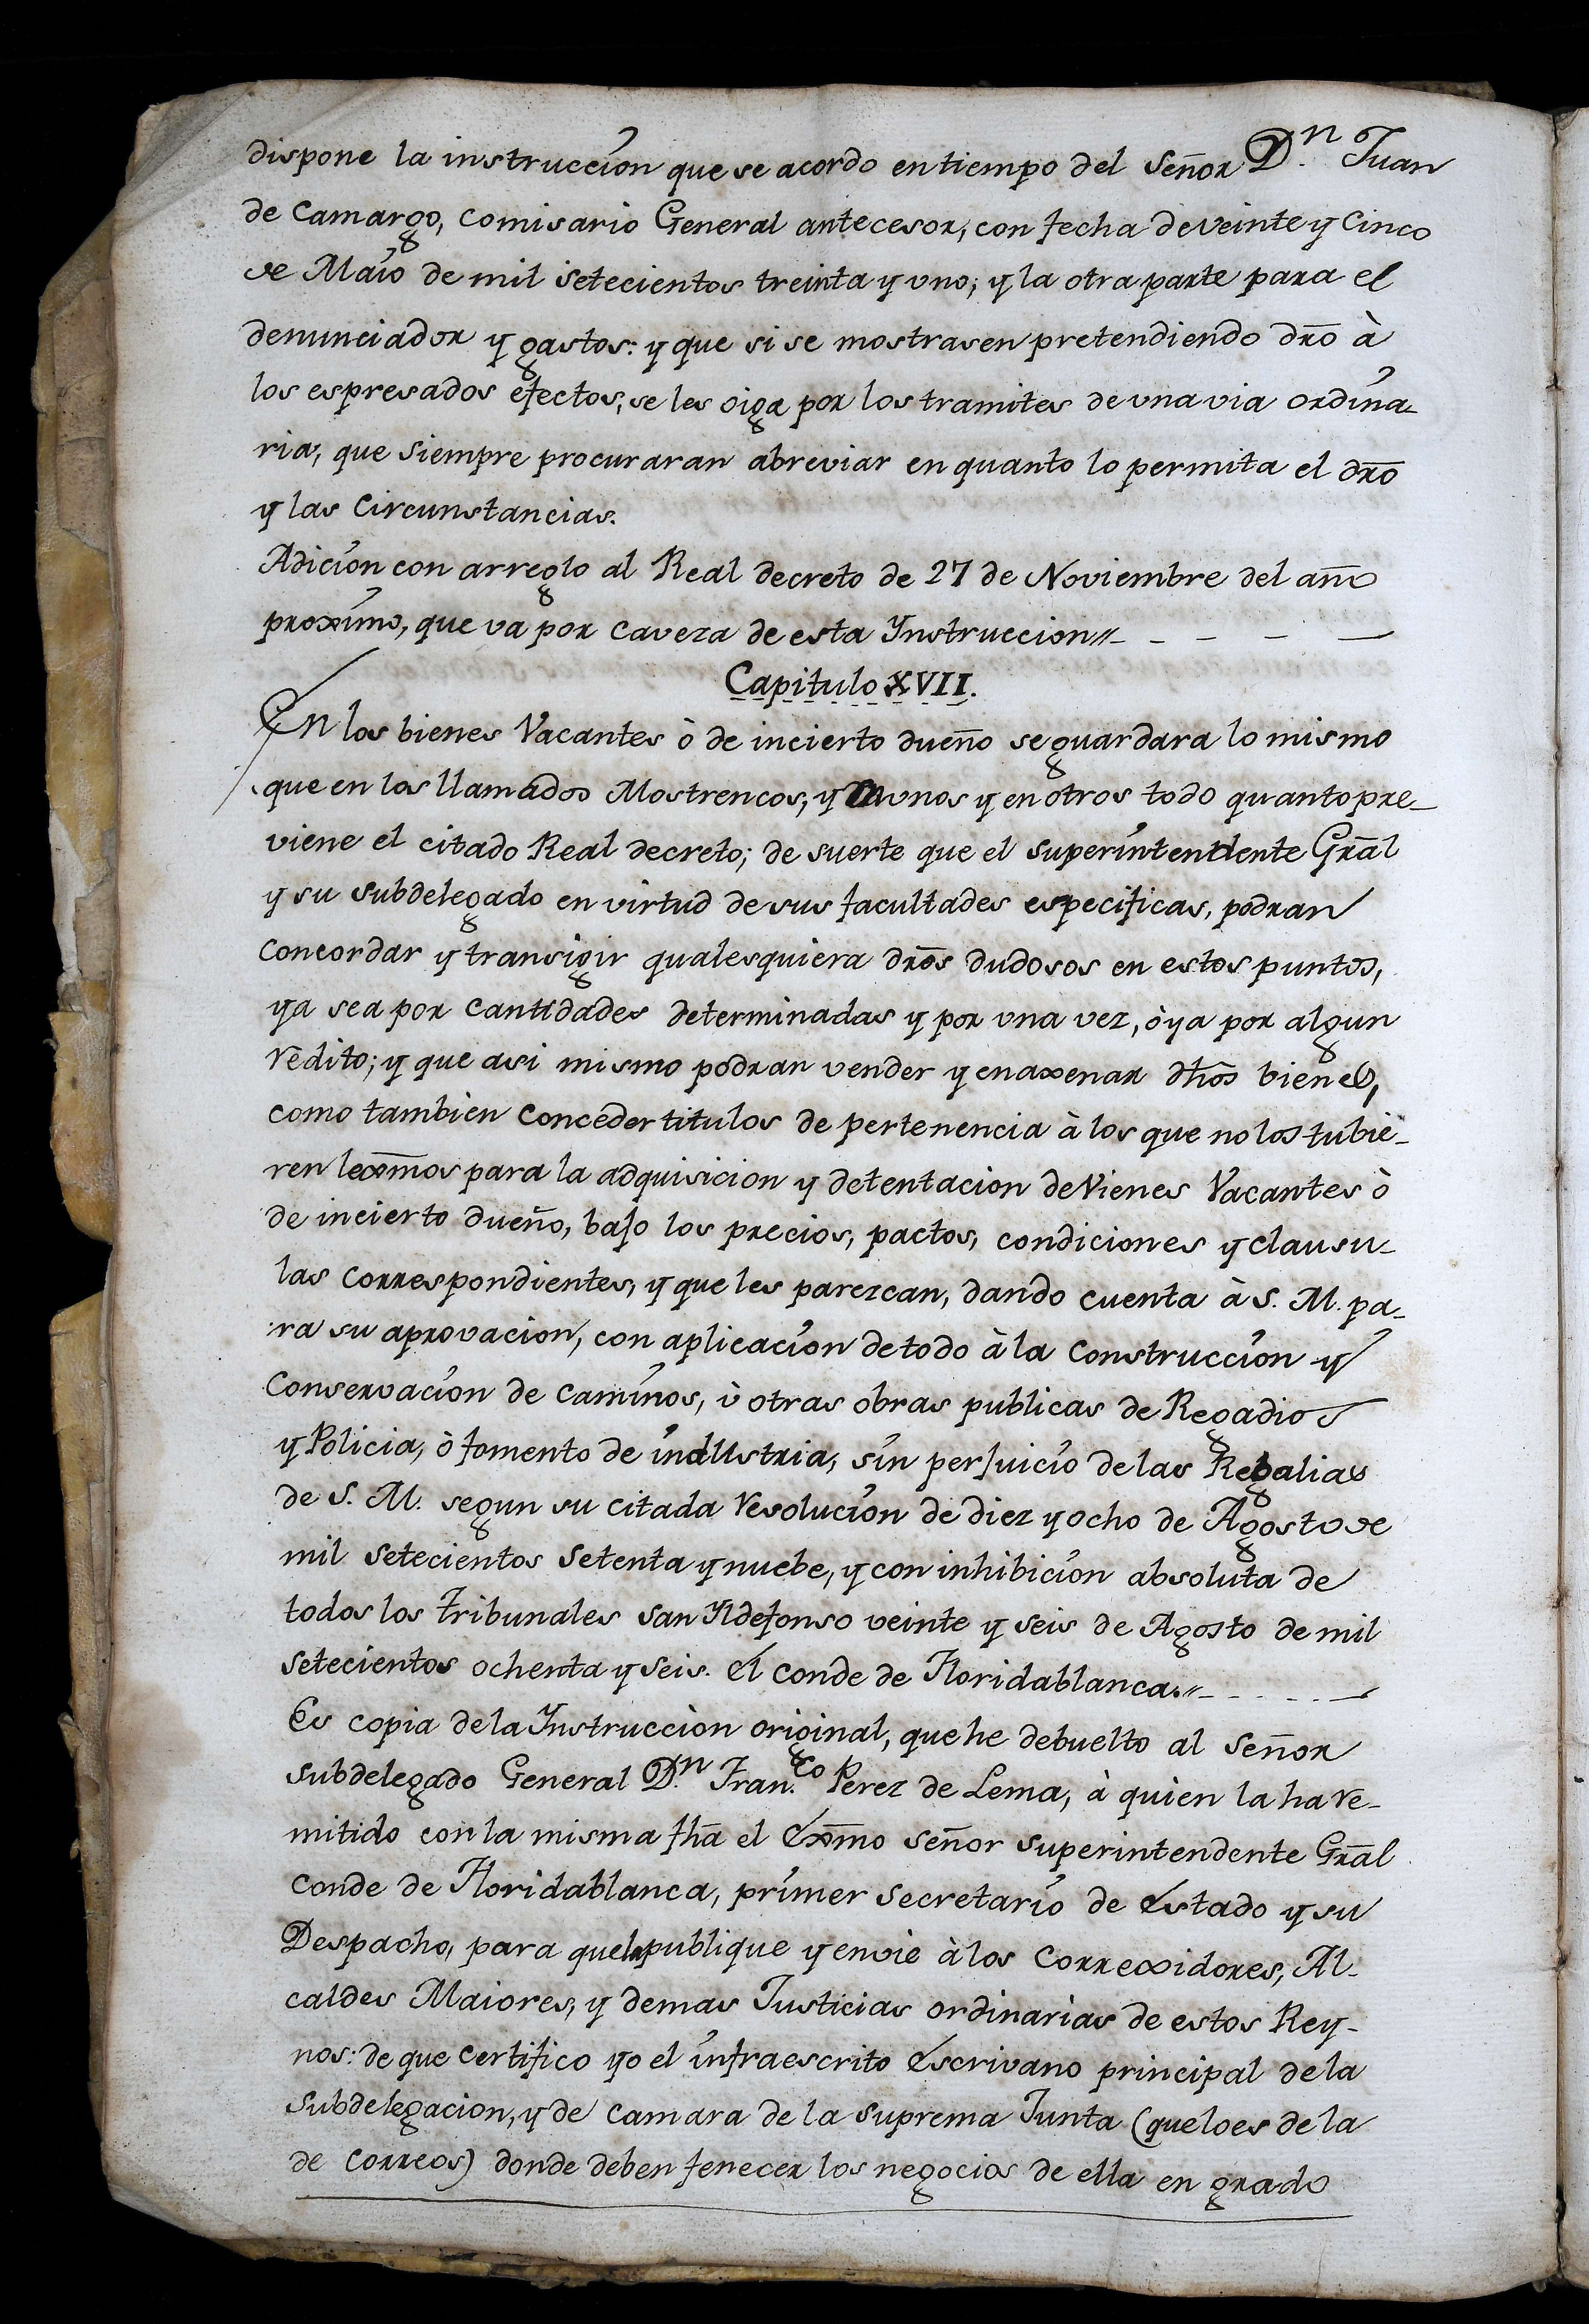 dispone la instruccion que se acordo en tiempo del Señor D.n Juan
de Camargo, Comisario General antecesor, con fecha de veinte y Cinco
de Maio de mil setecientos treinta y uno; y la otra parte para el
denunciador y gastos: y que si se mostrasen pretendiendo dr̃o à
los espresados efectos, se les oiga por los tramites de una via ordina-
ria, que Siempre procuraran abreviar en quanto lo permita el dr̃o
y las Circunstancias.
Adicion con arreglo al Real decreto de 27 de Noviembre del año
proximo, que va por Caveza de esta Ynstruccion//- - - - —
Capitulo XVII.
En los bienes Vacantes ò de incierto dueño se guardara lo mismo
que en los llamados Mostrencos, y en unos y en otros todo quanto pre-
viene el citado Real decreto; de suerte que el superintendente Gr̃al
y su subdelegado en virtud de sus facultades especificas, podran
Concordar y transigir qualesquiera dr̃os dudosos en estos puntos,
ya sea por Cantidades determinadas y por una vez, ò ya por algun
redito; y que asi mismo podran vender y enaxenar dh̃os bienes,
como tambien Conceder titulos de pertenencia à los que no los tubie-
ren lexm̃os para la adquisicion y detentacion de Vienes Vacantes ò
de incierto dueño, bajo los precios, pactos, condiciones y clausu-
las Correspondientes, y que les parezcan, dando cuenta à S. M. pa-
ra su aprovacion, con aplicacion de todo à la Construccion y
Conservacion de Caminos, ù otras obras publicas de Regadios
y Policia, ò fomento de industria, sin perjuicio de las Regalias
de S. M. segun su citada resolucion de diez y ocho de Agosto de
mil setecientos setenta y nuebe, y con inhibicion absoluta de
todos los tribunales San Yldefonso veinte y seis de Agosto de mil
setecientos ochenta y seis. El Conde de Floridablanca.//- - - - - -
Es copia de la Ynstruccion original, que he debuelto al Señor
subdelegado General D.n Fran.co Perez de Lema, à quien la ha re-
mitido con la misma fh̃a el Exm̃o señor superintendente Gr̃al
Conde de Floridablanca, primer Secretario de Estado y su
Despacho, para que la publique y envie à los Correxidores, Al-
caldes Maiores, y demas Justicias ordinarias de estos Rey-
nos: de que Certifico yo el infraescrito Escrivano principal de la
Subdelegacion, y de Camara de la Suprema Junta (que lo es de la
de Correos) donde deben fenecer los negocios de ella en grado